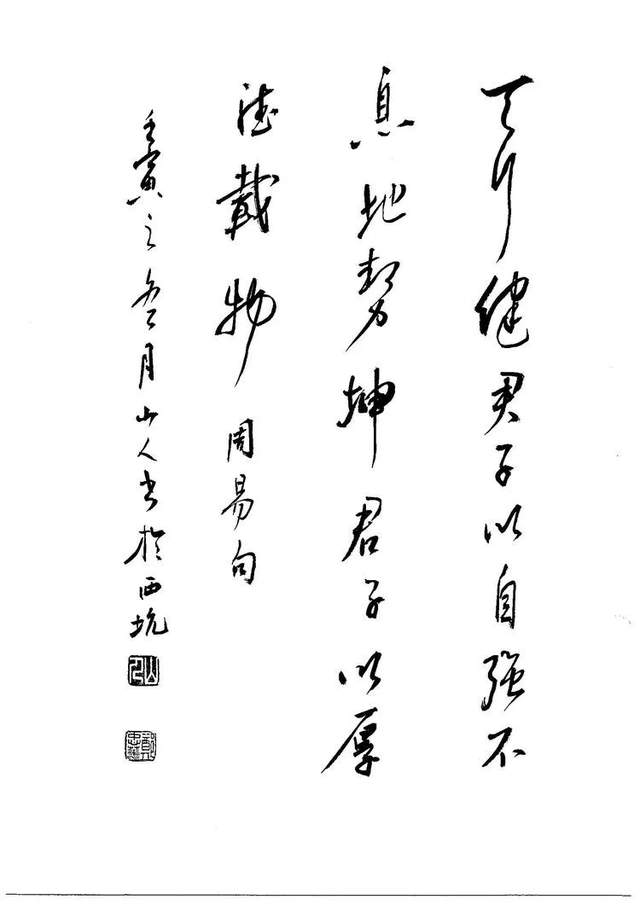 天行健君子以自强不
息地势坤君子以厚
德载物 周易句
壬寅之冬月山人书於西坑
山人